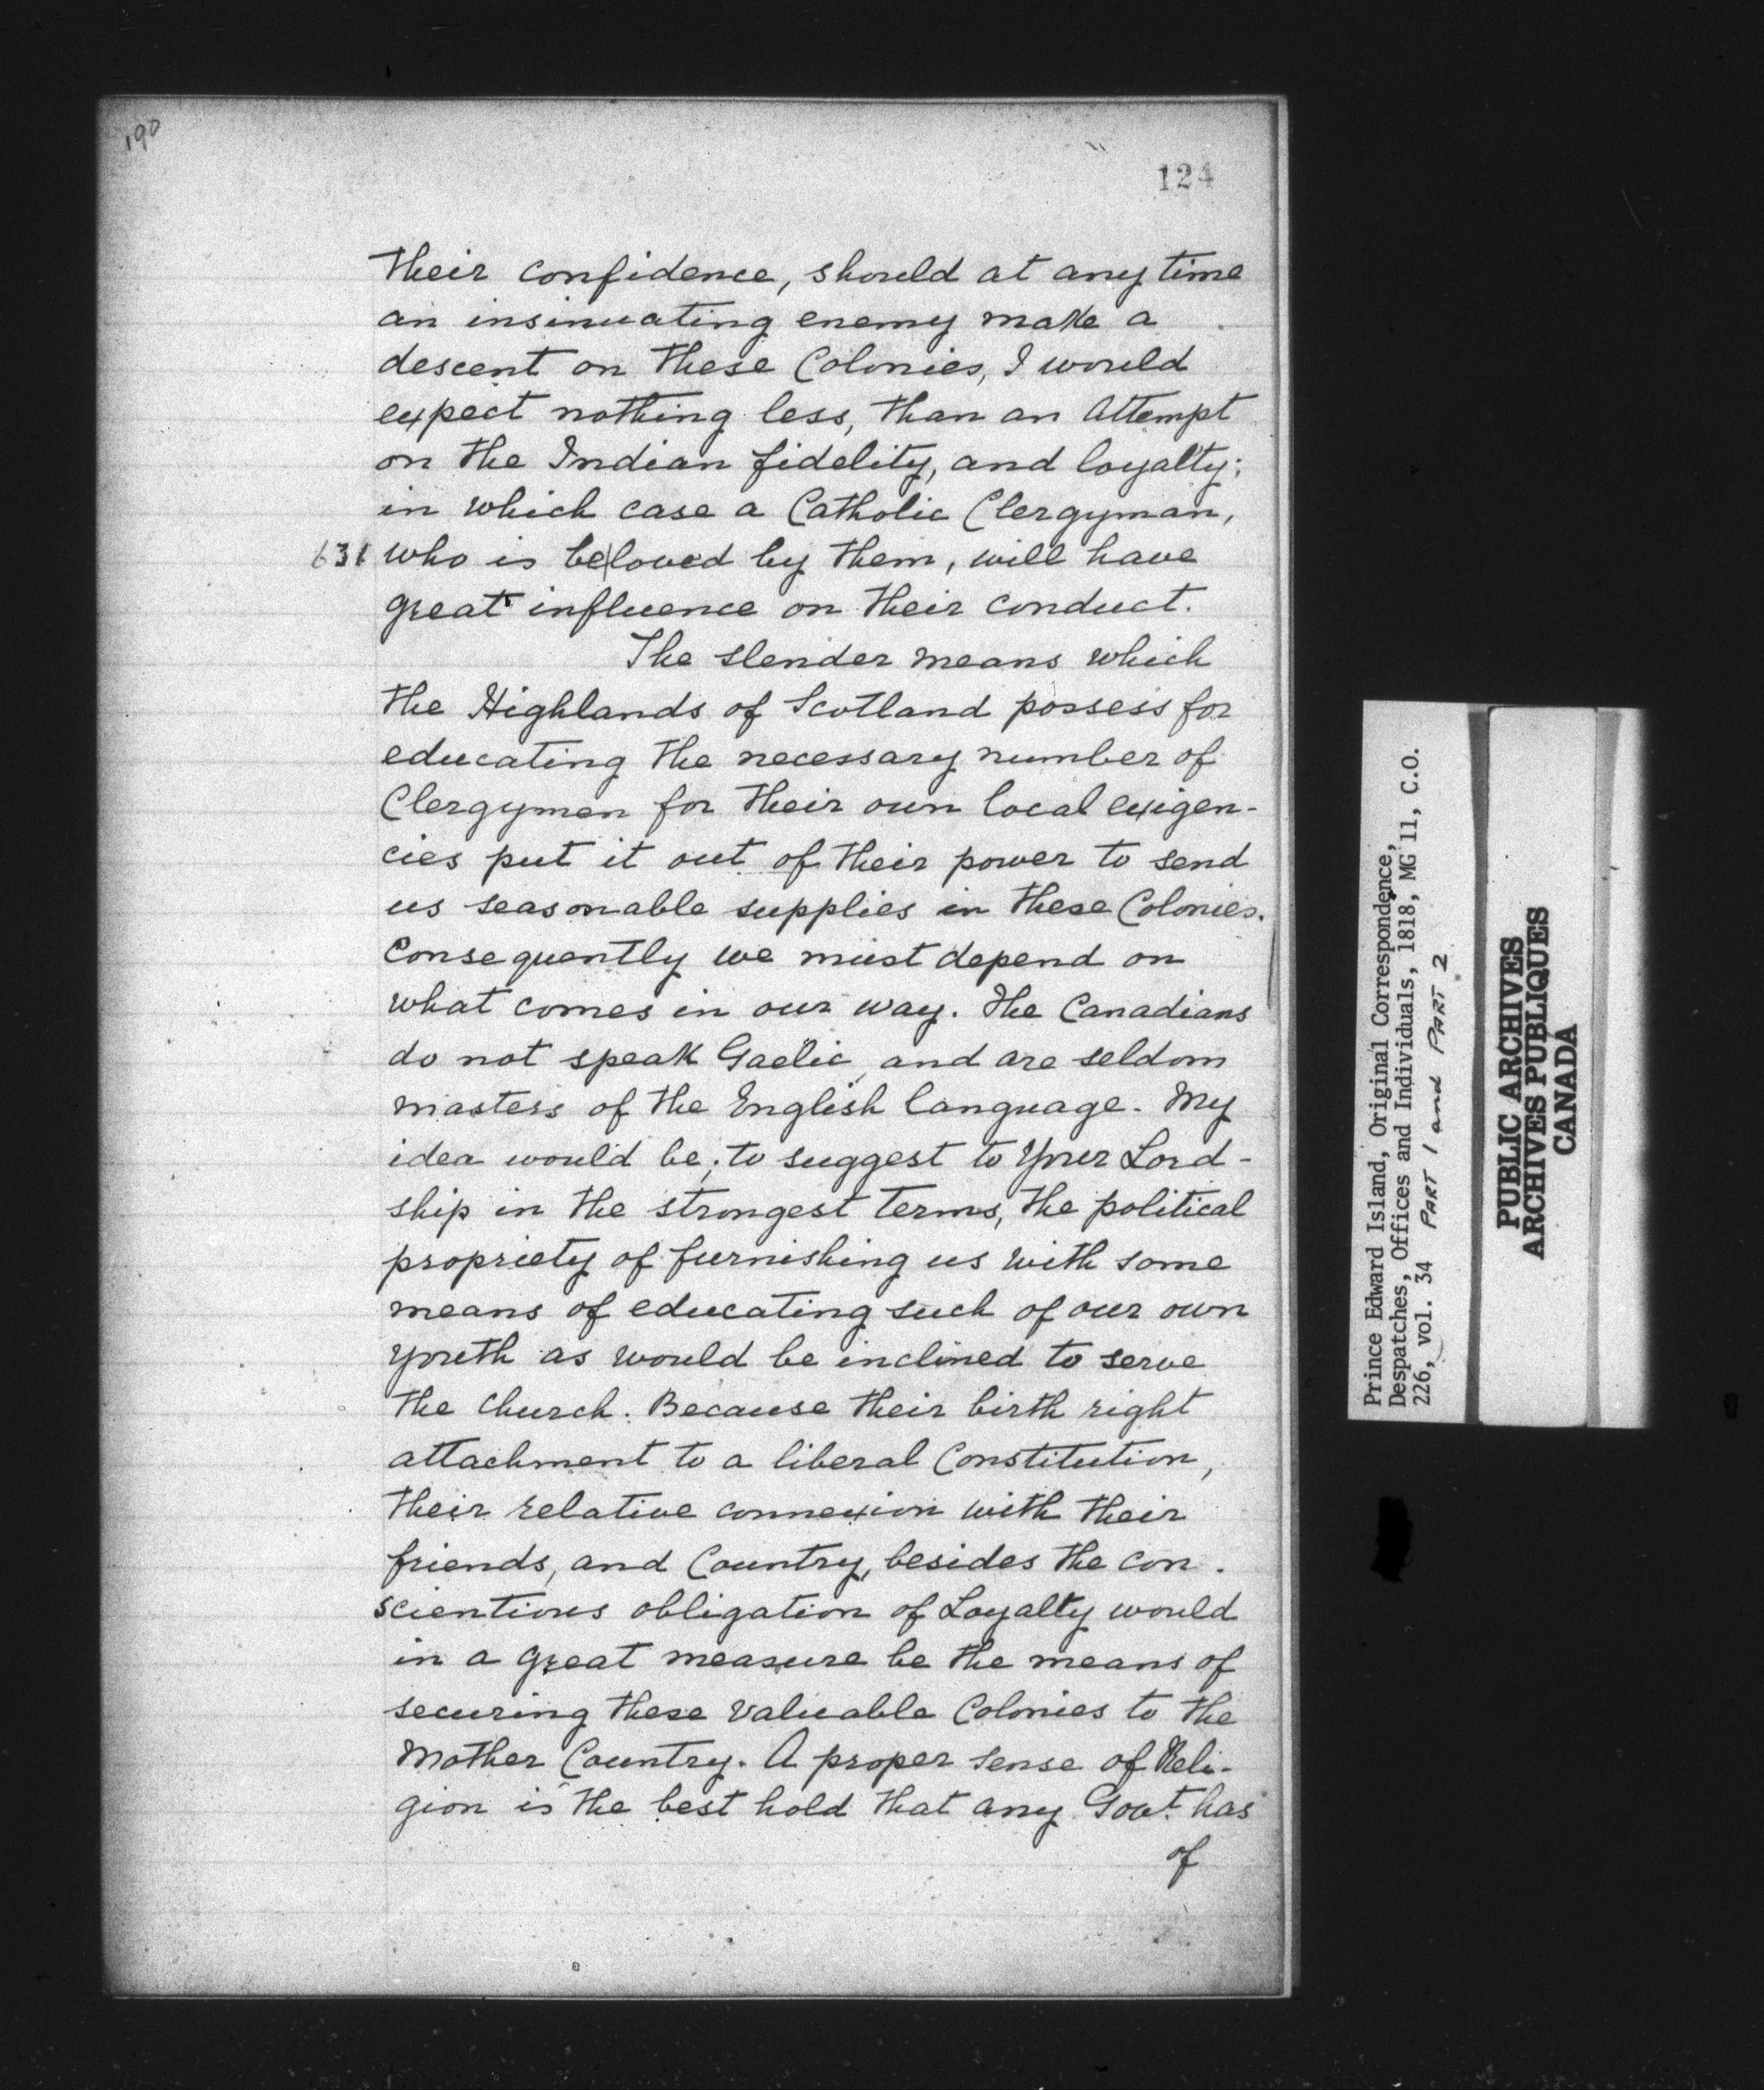 190
124
their confidence, should at any time
an insinuating enemy make a
descent on these Colonies, I would
expect nothing less, than an attempt
on the Indian fidelity, and loyalty;
in which case a Catholic Clergyman,
631 who is be|loved by them, will have
great influence on their conduct.
The slender means which
the Highlands of Scotland possess for
educating the necessary number of
Clergymen for their own local exigen-
cies put it out of their power to send
us seasonable supplies in these Colonies.
Consequently we must depend on
what comes in our way. The Canadians
do not speak Gaelic, and are seldom
masters of the English language. My
idea would be, to suggest to Your Lord-
ship in the strongest terms, the political
propriety of furnishing us with some
means of educating such of our own
youth as would be inclined to serve
the church. Because their birth right
attachment to a liberal Constitution,
their relative connexion with their
friends, and Country, besides the con-
scientious obligation of Loyalty would
in a great measure be the means of
securing these valuable Colonies to the
Mother Country. A proper sense of Reli-
gion is the best hold that any Govt. has
of
Prince Edward Island, Original Correspondence,
Despatches, Offices and Individuals, 1818, MG 11, C.O.
226, vol. 34 PART 1 and PART 2
PUBLIC ARCHIVES
ARCHIVES PUBLIQUES
CANADA